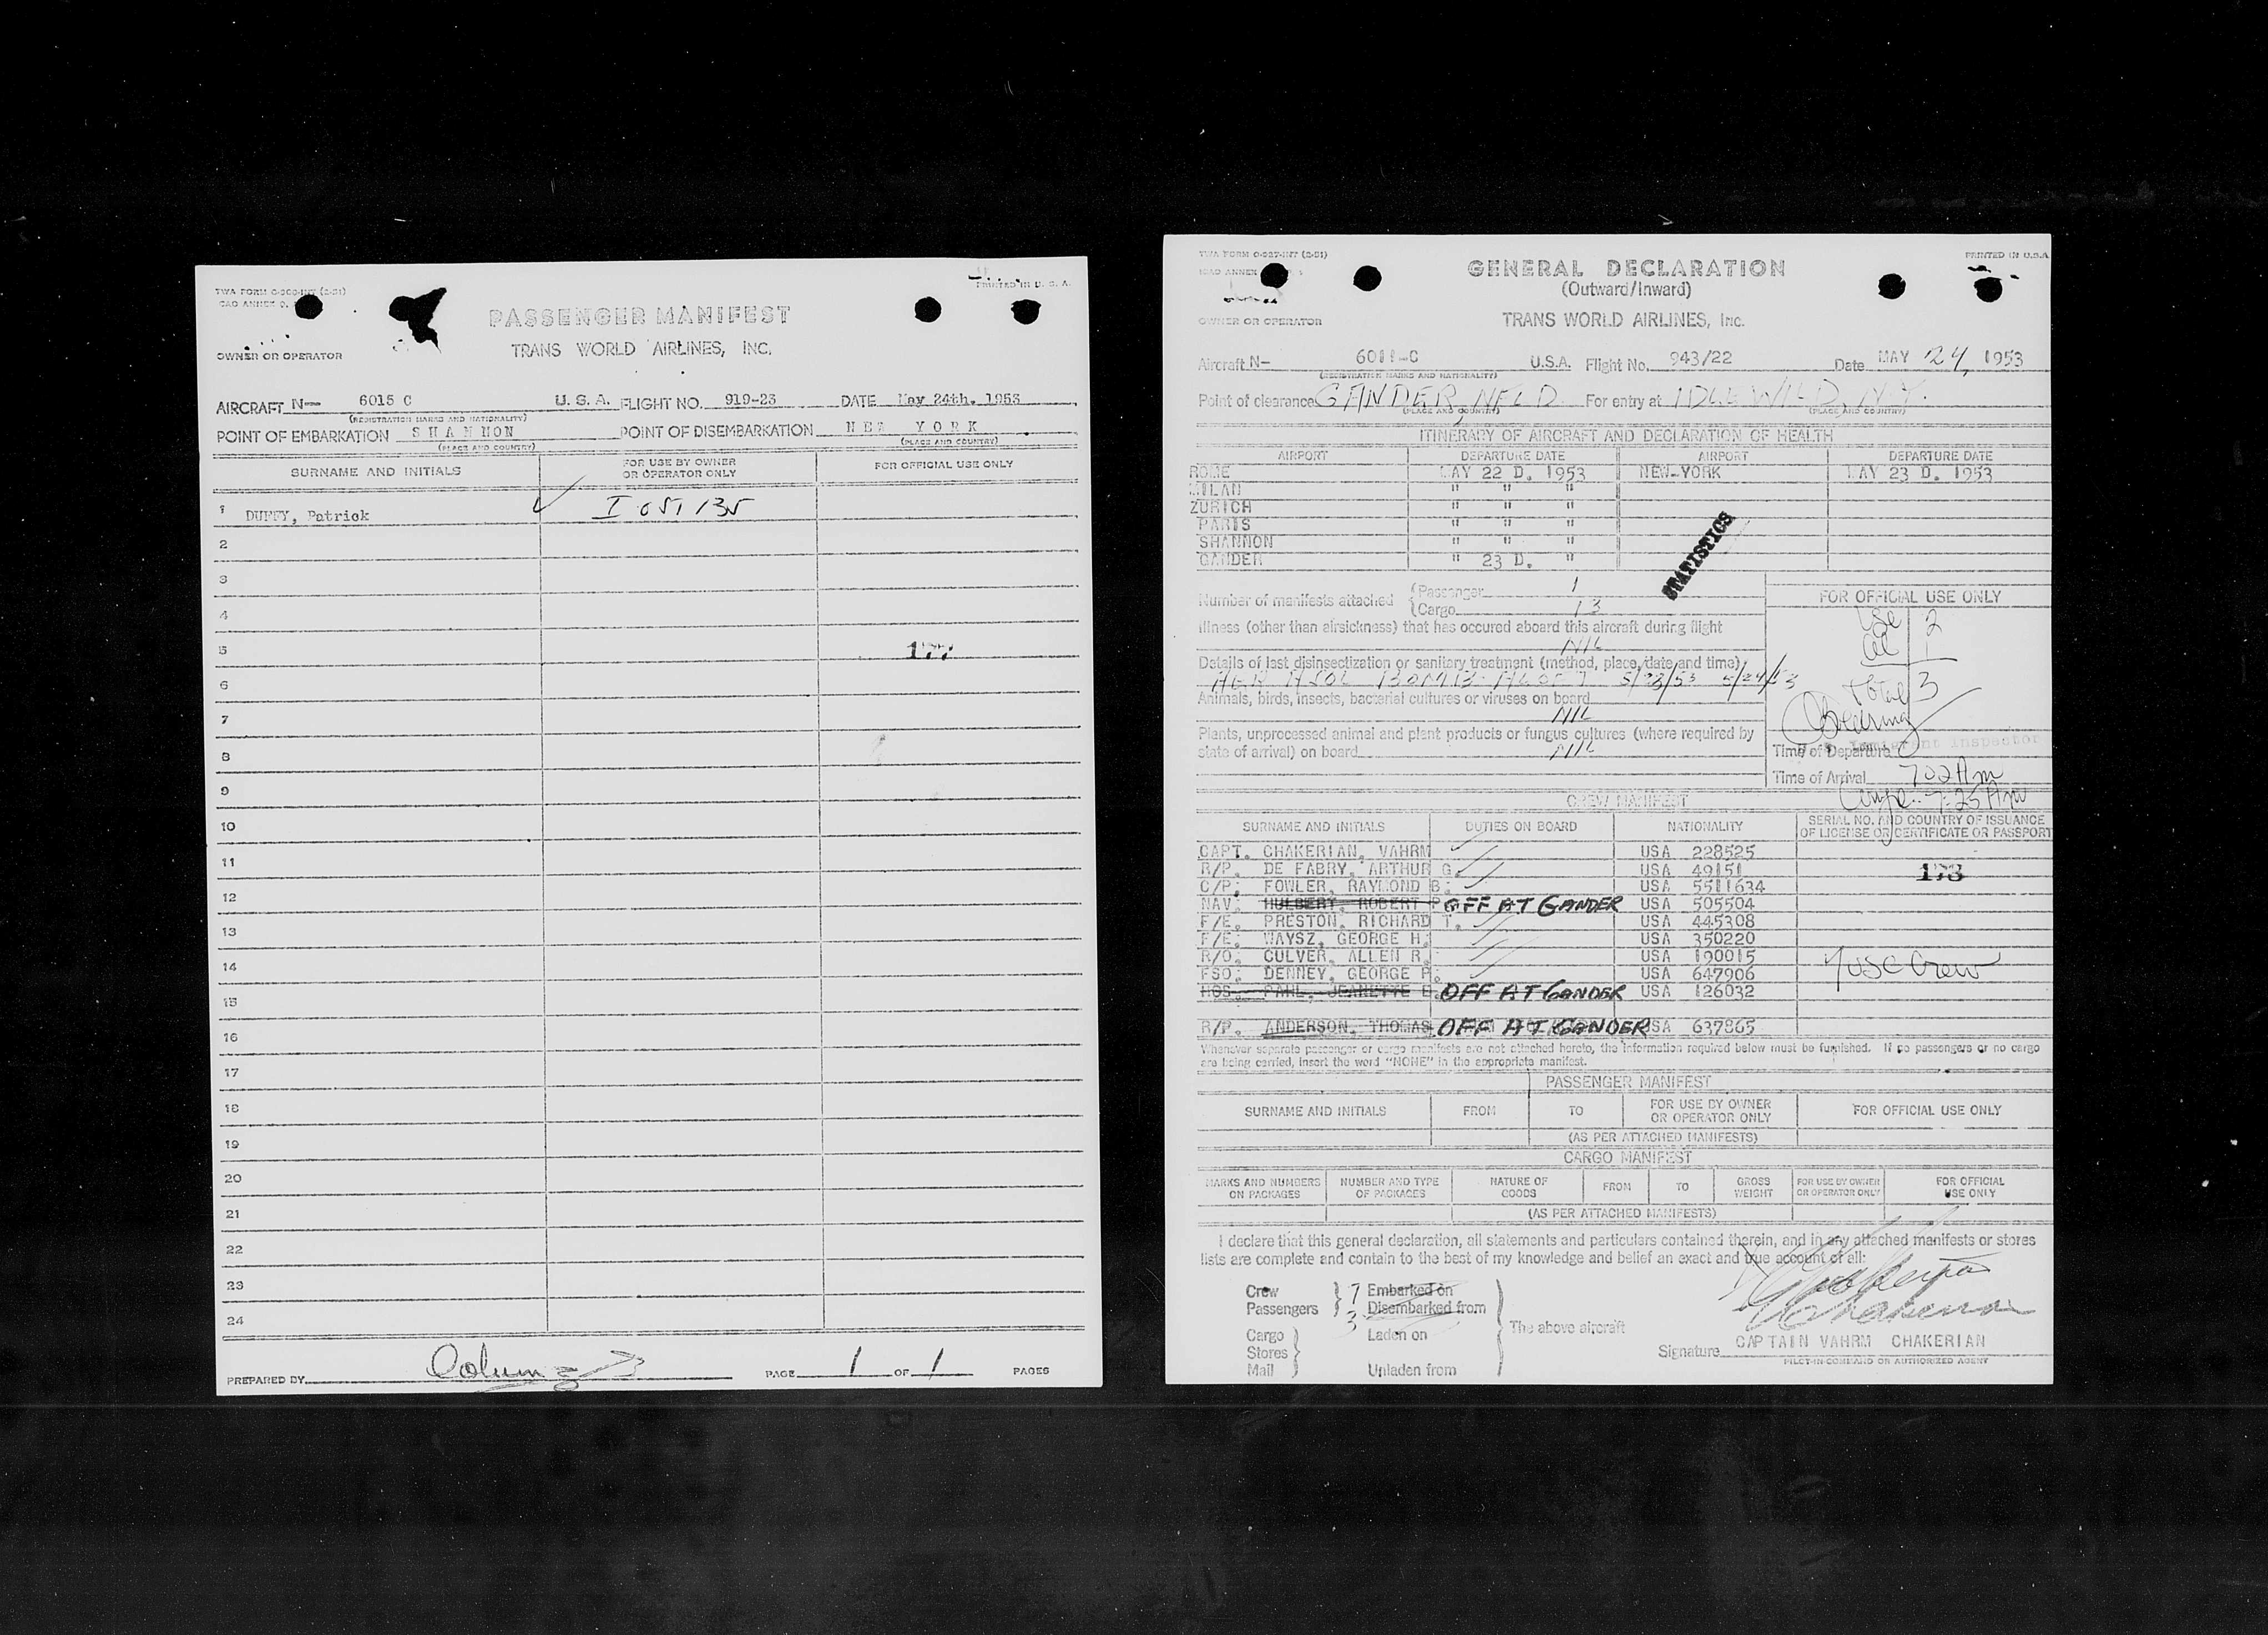 TWA FORM O-300-INT (2-51)
PRINTED IN U. S. A.
PASSENGER MANIFEST
TRANS WORLD AIRLINES, INC.
OWNER OR OPERATOR
AIRCRAFT N— 6015 C U. S. A. FLIGHT NO. 919-23 DATE May 24th, 1953
(REGISTRATION MARKS AND NATIONALITY)
POINT OF EMBARKATION S H A N N O N POINT OF DISEMBARKATION N E W Y O R K
(PLACE AND COUNTRY) (PLACE AND COUNTRY)
SURNAME AND INITIALS FOR USE BY OWNER OR OPERATOR ONLY FOR OFFICIAL USE ONLY
1 DUFFY, Patrick I 051135
2
3
4
5 177
6
7
8
9
10
11
12
13
14
15
16
17
18
19
20
21
22
23
24
PREPARED BY PAGE 1 OF 1 PAGES
TWA FORM O-927-INT (2-51)
PRINTED IN U.S.A
GENERAL DECLARATION
(Outward/Inward)
OWNER OR OPERATOR TRANS WORLD AIRLINES, Inc.
Aircraft N— 6011-C U.S.A. Flight No. 943/22 Date MAY 24, 1953
(REGISTRATION MARKS AND NATIONALITY)
Point of clearance GANDER, NFLD For entry at IDLEWILD, N.Y.
(PLACE AND COUNTRY) (PLACE AND COUNTRY)
ITINERARY OF AIRCRAFT AND DECLARATION OF HEALTH
AIRPORT DEPARTURE DATE AIRPORT DEPARTURE DATE
ROME MAY 22 D. 1953 NEW-YORK MAY 23 D. 1953
MILAN " " "
ZURICH " " "
PARIS " " "
SHANNON " " "
GANDER " 23 D. "
STATISTICS
Number of manifests attached {Passenger 1
{Cargo 13
FOR OFFICIAL USE ONLY
USC 2
al 1
Total 3
Illness (other than airsickness) that has occured aboard this aircraft during flight
NIL
Details of last disinsectization or sanitary treatment (method, place, date and time)
5/23/53 5/24/53
Animals, birds, insects, bacterial cultures or viruses on board
NIL
Plants, unprocessed animal and plant products or fungus cultures (where required by
state of arrival) on board NIL
Immigrant Inspector
Time of Departure
Time of Arrival 702 Am
7:25 Am
CREW MANIFEST
SURNAME AND INITIALS DUTIES ON BOARD NATIONALITY SERIAL NO. AND COUNTRY OF ISSUANCE OF LICENSE OR CERTIFICATE OR PASSPORT
CAPT. CHAKERIAN, VAHRM USA 228525
R/P. DE FABRY, ARTHUR G. USA 49151 173
C/P. FOWLER, RAYMOND B. USA 5511634
NAV. HULBERT, ROBERT P. OFF AT GANDER USA 505504
F/E. PRESTON, RICHARD T. USA 445308
F/E. WAYSZ, GEORGE H. USA 350220
R/O. CULVER, ALLEN R. USA 190015
FSO. DENNEY, GEORGE P. USA 647906 7 USC Crew
HOS. PAHL, JEANETTE E. OFF AT GANDER USA 126032
R/P. ANDERSON, THOMAS OFF AT GANDER USA 637865
Whenever separate passenger or cargo manifests are not attached hereto, the information required below must be furnished. If no passengers or no cargo
are being carried, insert the word "NONE" in the appropriate manifest.
PASSENGER MANIFEST
SURNAME AND INITIALS FROM TO FOR USE BY OWNER OR OPERATOR ONLY FOR OFFICIAL USE ONLY
(AS PER ATTACHED MANIFESTS)
CARGO MANIFEST
MARKS AND NUMBERS ON PACKAGES NUMBER AND TYPE OF PACKAGES NATURE OF GOODS FROM TO GROSS WEIGHT FOR USE BY OWNER OR OPERATOR ONLY FOR OFFICIAL USE ONLY
(AS PER ATTACHED MANIFESTS)
I declare that this general declaration, all statements and particulars contained therein, and in any attached manifests or stores
lists are complete and contain to the best of my knowledge and belief an exact and true account of all:
Crew 7 Embarked on
Passengers 3 Disembarked from
Cargo Laden on The above aircraft
Stores
Mail Unladen from
Signature CAPTAIN VAHRM CHAKERIAN
PILOT-IN-COMMAND OR AUTHORIZED AGENT